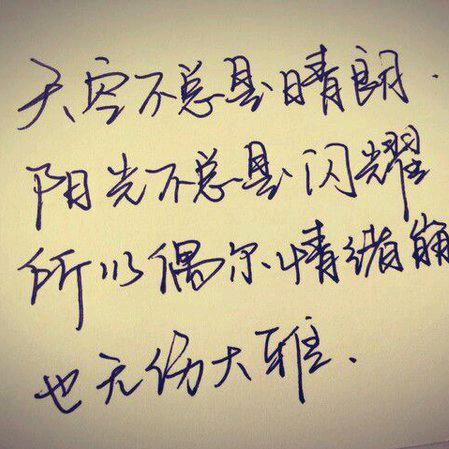 天空不总是晴朗.
阳光不总是闪耀
所以偶尔情绪崩
也无伤大雅.